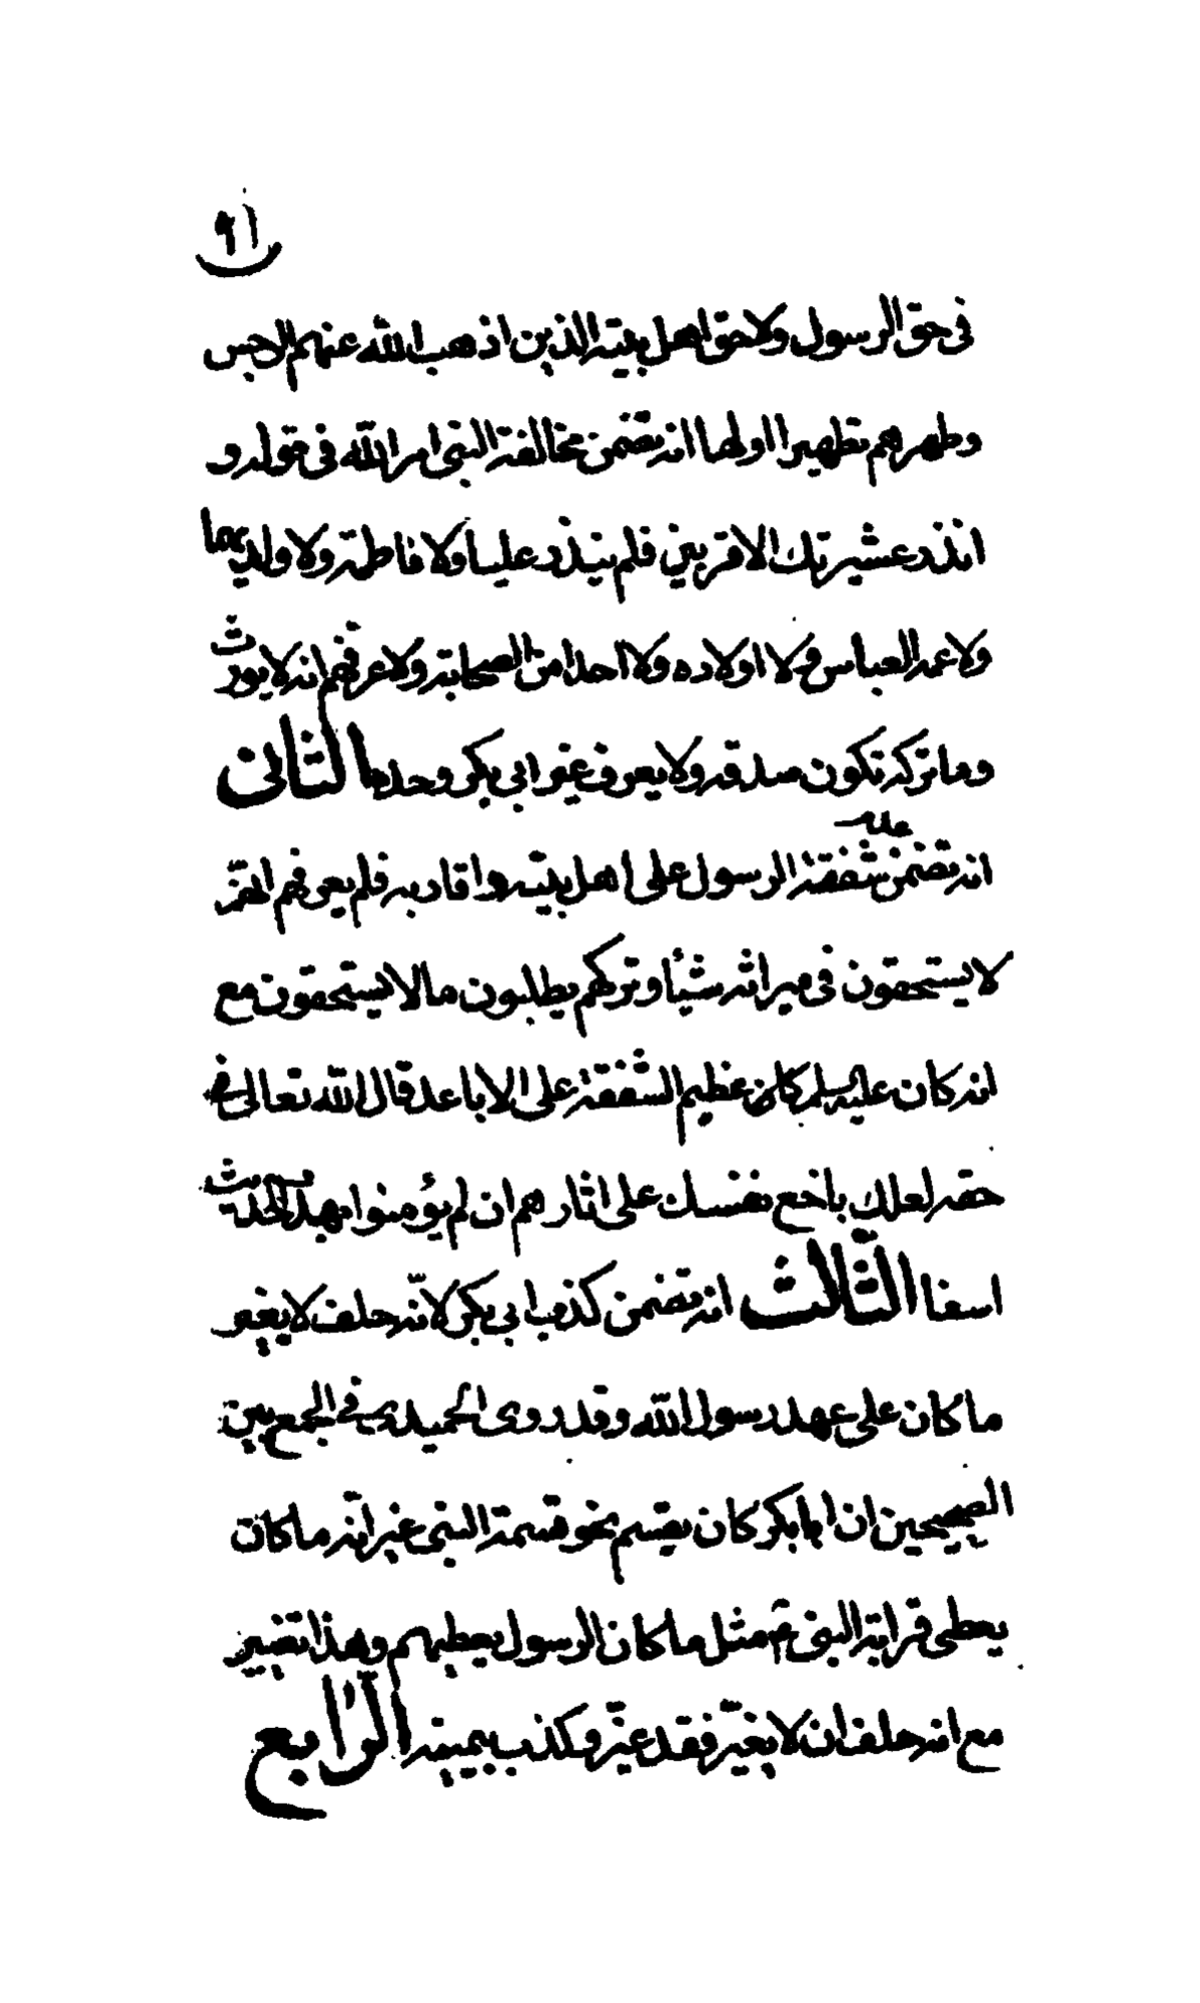 ٩١
فى حق الرسول ولا حق اهل بيته الذين اذهب الله عنهم الرجس
وطهرهم تطهيرا اولها انه تضمن مخالفة النبى امر الله فى قوله و
انذر عشيرتك الاقربين فلم ينذر عليا ولا فاطمة ولا ولديهما
ولا عمه العباس ولا اولاده ولا احدا من الصحابة ولا عرفهم انه لا يورث
وما تركه تكون صدقه ولا يعرف غير ابى بكر وحده الثانى
انه تضمن شفقة الرسول على اهل بيته واقاربه فلم يعرفهم انهم
عليه
لا يستحقون فى ميراثه شيئا وتركهم يطلبون مالا يستحقون مع
انه كان عليه السلم كان عظيم الشفقة على الاباعد قال الله تعالى فى
حقه لعلك باخع نفسك على اثارهم ان لم يؤمنوا بهذا الحديث
اسفا الثالث انه تضمن كذب ابى بكر لانه حلف لا يغير
ما كان على عهد رسول الله وقد روى الحميدى فى الجمع بين
الصحيحين ان ابا بكر كان يقسم نحو قسمة النبى غير انه ما كان
يعطى قرابة النبى ع مثل ما كان الرسول يعطيهم وهذا تغيير
مع انه حلف ان لا يغير فقد غير وكذب يمينه الرابع